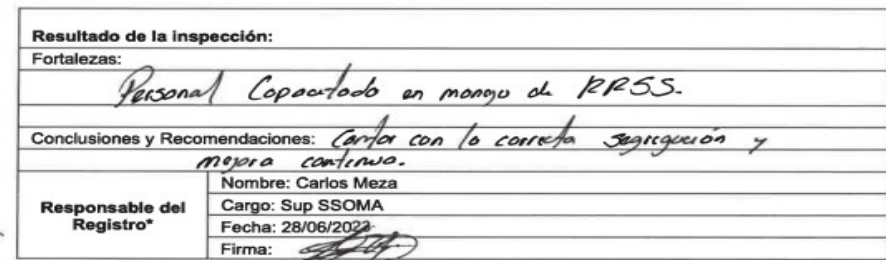 Resultado de la inspección:
Fortalezas:
Personal Capacitado en manejo de RRSS.
Conclusiones y Recomendaciones: Contar con la correcta segregación y
mejora continua.
Responsable del Registro*
Nombre: Carlos Meza
Cargo: Sup SSOMA
Fecha: 28/06/2022
Firma: